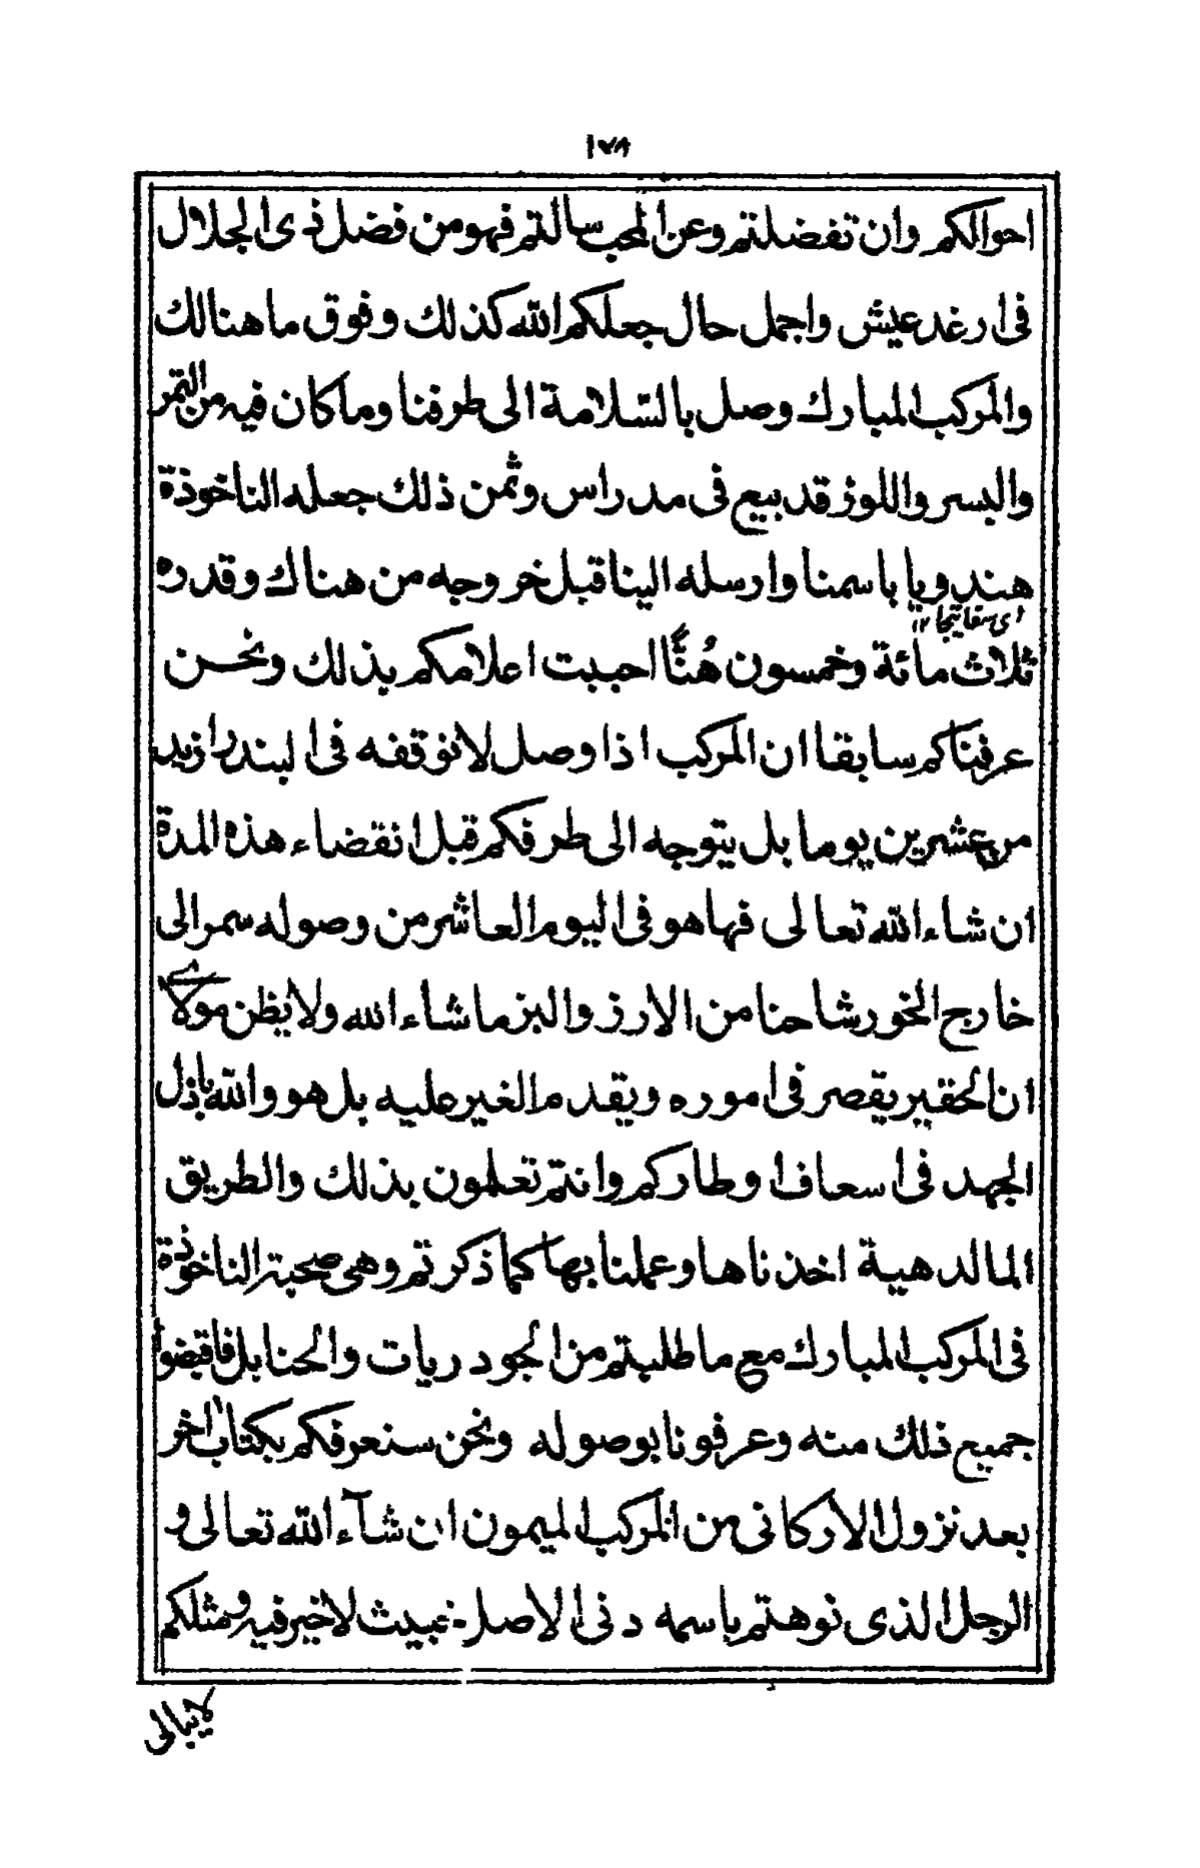 ١٧٨
احوالكم وان تفضلتم وعن المحب سالتم فهو من فضل ذى الجلال
فى ارغد عيش واجمل حال جعلكم الله كذلك وفوق ما هنالك
والمركب المبارك وصل بالسّلامة الى طرفنا وما كان فيه من التمر
والبسر واللوز قد بيع فى مدراس وثمن ذلك جعله الناخوذة
هندويا باسمنا وارسله الينا قبل خروجه من هناك وقدره
اى سفاتيجا ١٢
ثلاث مائة وخمسون هُنًّا احببت اعلامكم بذلك ونحن
عرفناكم سابقا ان المركب اذا وصل لا نوقفه فى البندر ازيد
من عشرين يوما بل يتوجه الى طرفكم قبل انقضاء هذه المدة
ان شاء الله تعالى فها هو فى اليوم العاشر من وصوله سمر الى
خارج الخور شاحنا من الارز والبز ما شاء الله ولا يظن مولاے
ان الحقير يقصر فى اموره ويقدم الغير عليه بل هو والله باذل
الجهد فى اسعاف اوطاركم وانتم تعلمون بذلك والطريق
المالدهية اخذناها وعملنا بها كما ذكرتم وهى صحبة الناخوذة
فى المركب المبارك مع ما طلبتم من الجودريات والحنابل فاقبضوا
جميع ذلك منه وعرفونا بوصوله ونحن سنعرفكم بكتاب اخر
بعد نزول الاركانى من المركب الميمون ان شآء الله تعالى و
الرجل الذى نوهتم باسمه دنى الاصل خبيث لا خير فيه ومثلكم
لا يبالى